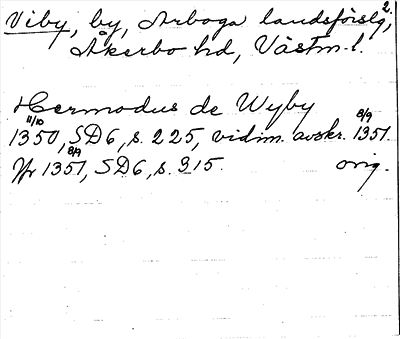 Viby, by, Arboga landsförslg, 2.
Åkerbo hd, Västm. l.
Hermodus de Wyby
11/10 8/9
1350, SD6, s. 225, vidim. avskr. 1351.
8/9
Yr 1351, SD6, s. 315. orig.